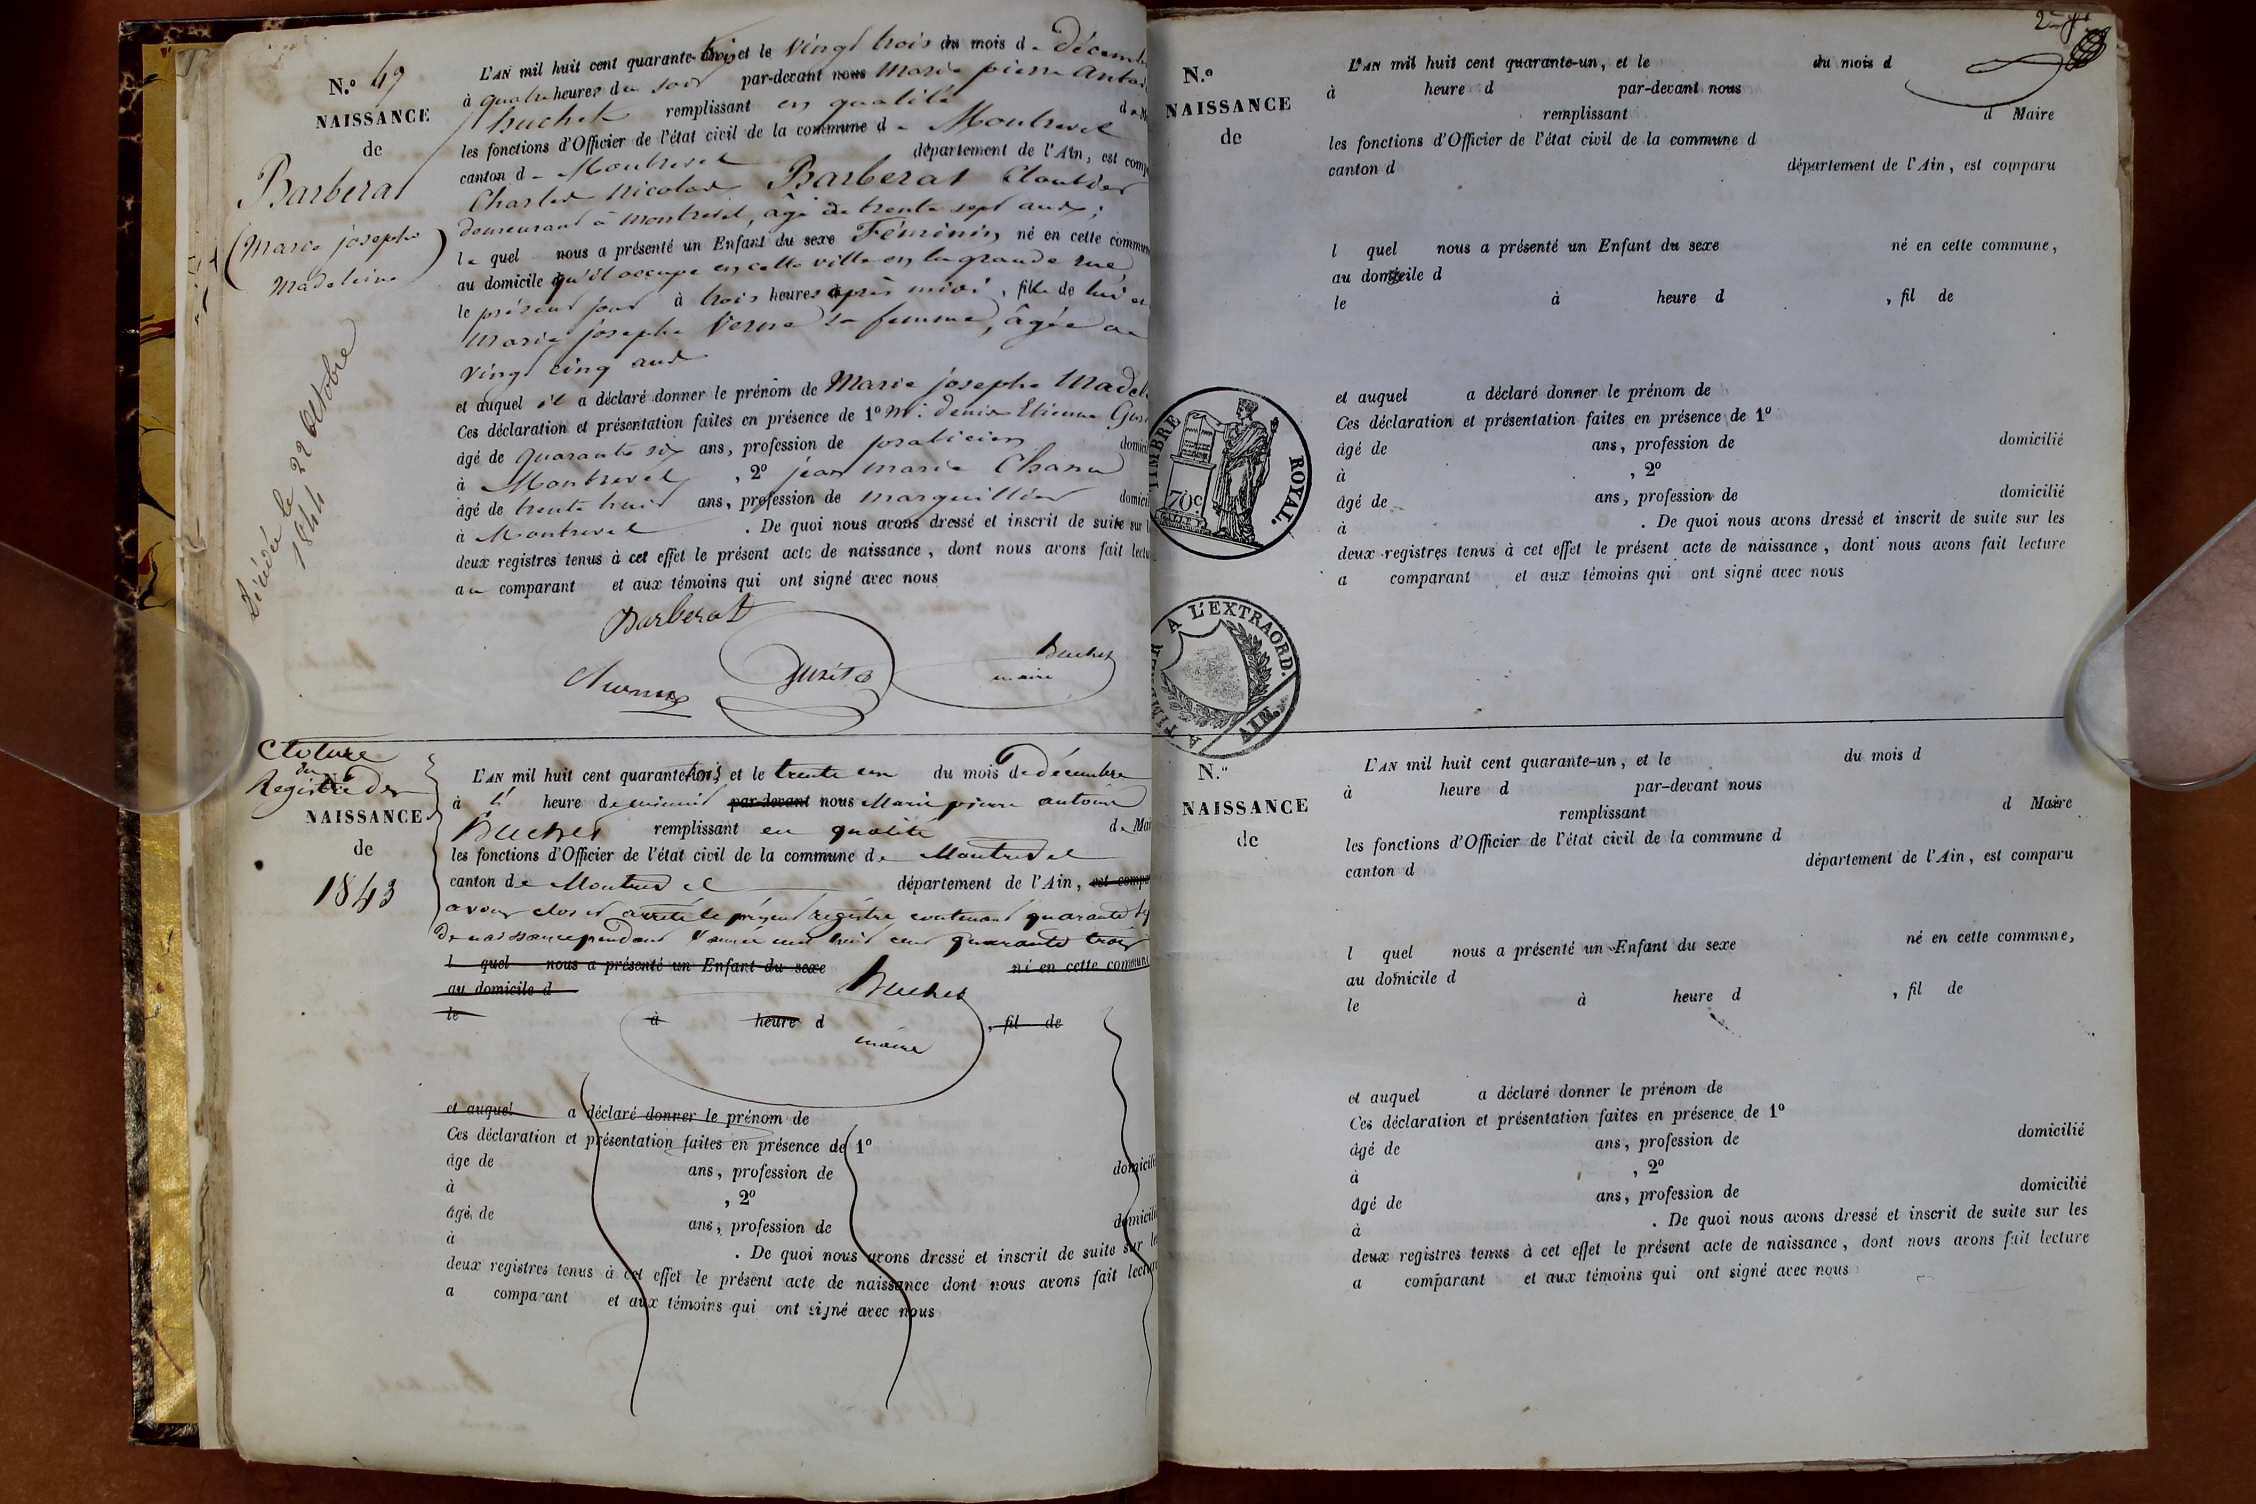 N.o 47
NAISSANCE
de
Barberat
(Marie josephe
Madeleine)
Décédée le 22 Octobre
1844
L'AN mil huit cent quarante-trois et le vingt trois du mois de décemb
à quatre heures du soir par-devant nous Marie pierre Antoi
Buchet remplissant en qualité de M
les fonctions d'Officier de l'état civil de la commune de Montrevel
canton de Montrevel département de l'Ain, est comp
Charles Nicolas Barberat Cloutier
demeurant à Montrevel, âgé de trente sept ans;
le quel nous a présenté un Enfant du sexe Féminin, né en cette commun
au domicile qu'il occupe en cette ville en la grande rue,
le présent jour à trois heures après midi, fille de lui et
Marie josephe Verne sa femme, âgée de
vingt cinq ans
et auquel il a déclaré donner le prénom de Marie josephe Madel
Ces déclaration et présentation faites en présence de 1o Mr. denis Etienne
âgé de quarante six ans, profession de praticien domici
à Montrevel, 2o jean marie
âgé de trente huit ans, profession de marguillier domici
à Montrevel. De quoi nous avons dressé et inscrit de suite sur l
deux registres tenus à cet effet le présent acte de naissance, dont nous avons fait lectu
au comparant et aux témoins qui ont signé avec nous
Barberat
Buchet
maire
Cloture
du
N.o
Registre des
NAISSANCE
de
1843
L'AN mil huit cent quarante trois et le trente un du mois de décembre
à heure de minuit par-devant nous Marie pierre antoine
Buchet remplissant en qualité de Mai
les fonctions d'Officier de l'état civil de la commune de Montrevel
canton de Montrevel département de l'Ain, est compa
avons clos et arrêté le présent registre contenant quarante
de naissance pendant l'année mil huit cent quarante trois
l quel nous a présenté un Enfant du sexe né en cette commun
au domicile d
Buchet
le à heure d , fil de
maire
et auquel a déclaré donner le prénom de
Ces déclaration et présentation faites en présence de 1o
âgé de ans, profession de domicili
à , 2o
âgé de ans, profession de domicili
à . De quoi nous avons dressé et inscrit de suite sur le
deux registres tenus à cet effet le présent acte de naissance dont nous avons fait lectur
a comparant et aux témoins qui ont signé avec nous
N.o
NAISSANCE
de
L'AN mil huit cent quarante-un, et le du mois d
à heure d par-devant nous
remplissant d Maire
les fonctions d'Officier de l'état civil de la commune d
canton d département de l'Ain, est comparu
l quel nous a présenté un Enfant du sexe né en cette commune,
au domicile d
le à heure d , fil de
et auquel a déclaré donner le prénom de
Ces déclaration et présentation faites en présence de 1o
âgé de ans, profession de domicilié
à , 2o
âgé de ans, profession de domicilié
à . De quoi nous avons dressé et inscrit de suite sur les
deux registres tenus à cet effet le présent acte de naissance, dont nous avons fait lecture
a comparant et aux témoins qui ont signé avec nous
TIMBRE ROYAL.
70c
A L'EXTRAORD.
AIN.
N.o
NAISSANCE
de
L'AN mil huit cent quarante-un, et le du mois d
à heure d par-devant nous
remplissant d Maire
les fonctions d'Officier de l'état civil de la commune d
canton d département de l'Ain, est comparu
l quel nous a présenté un Enfant du sexe né en cette commune,
au domicile d
le à heure d , fil de
et auquel a déclaré donner le prénom de
Ces déclaration et présentation faites en présence de 1o
âgé de ans, profession de domicilié
à , 2o
âgé de ans, profession de domicilié
à . De quoi nous avons dressé et inscrit de suite sur les
deux registres tenus à cet effet le présent acte de naissance, dont nous avons fait lecture
a comparant et aux témoins qui ont signé avec nous